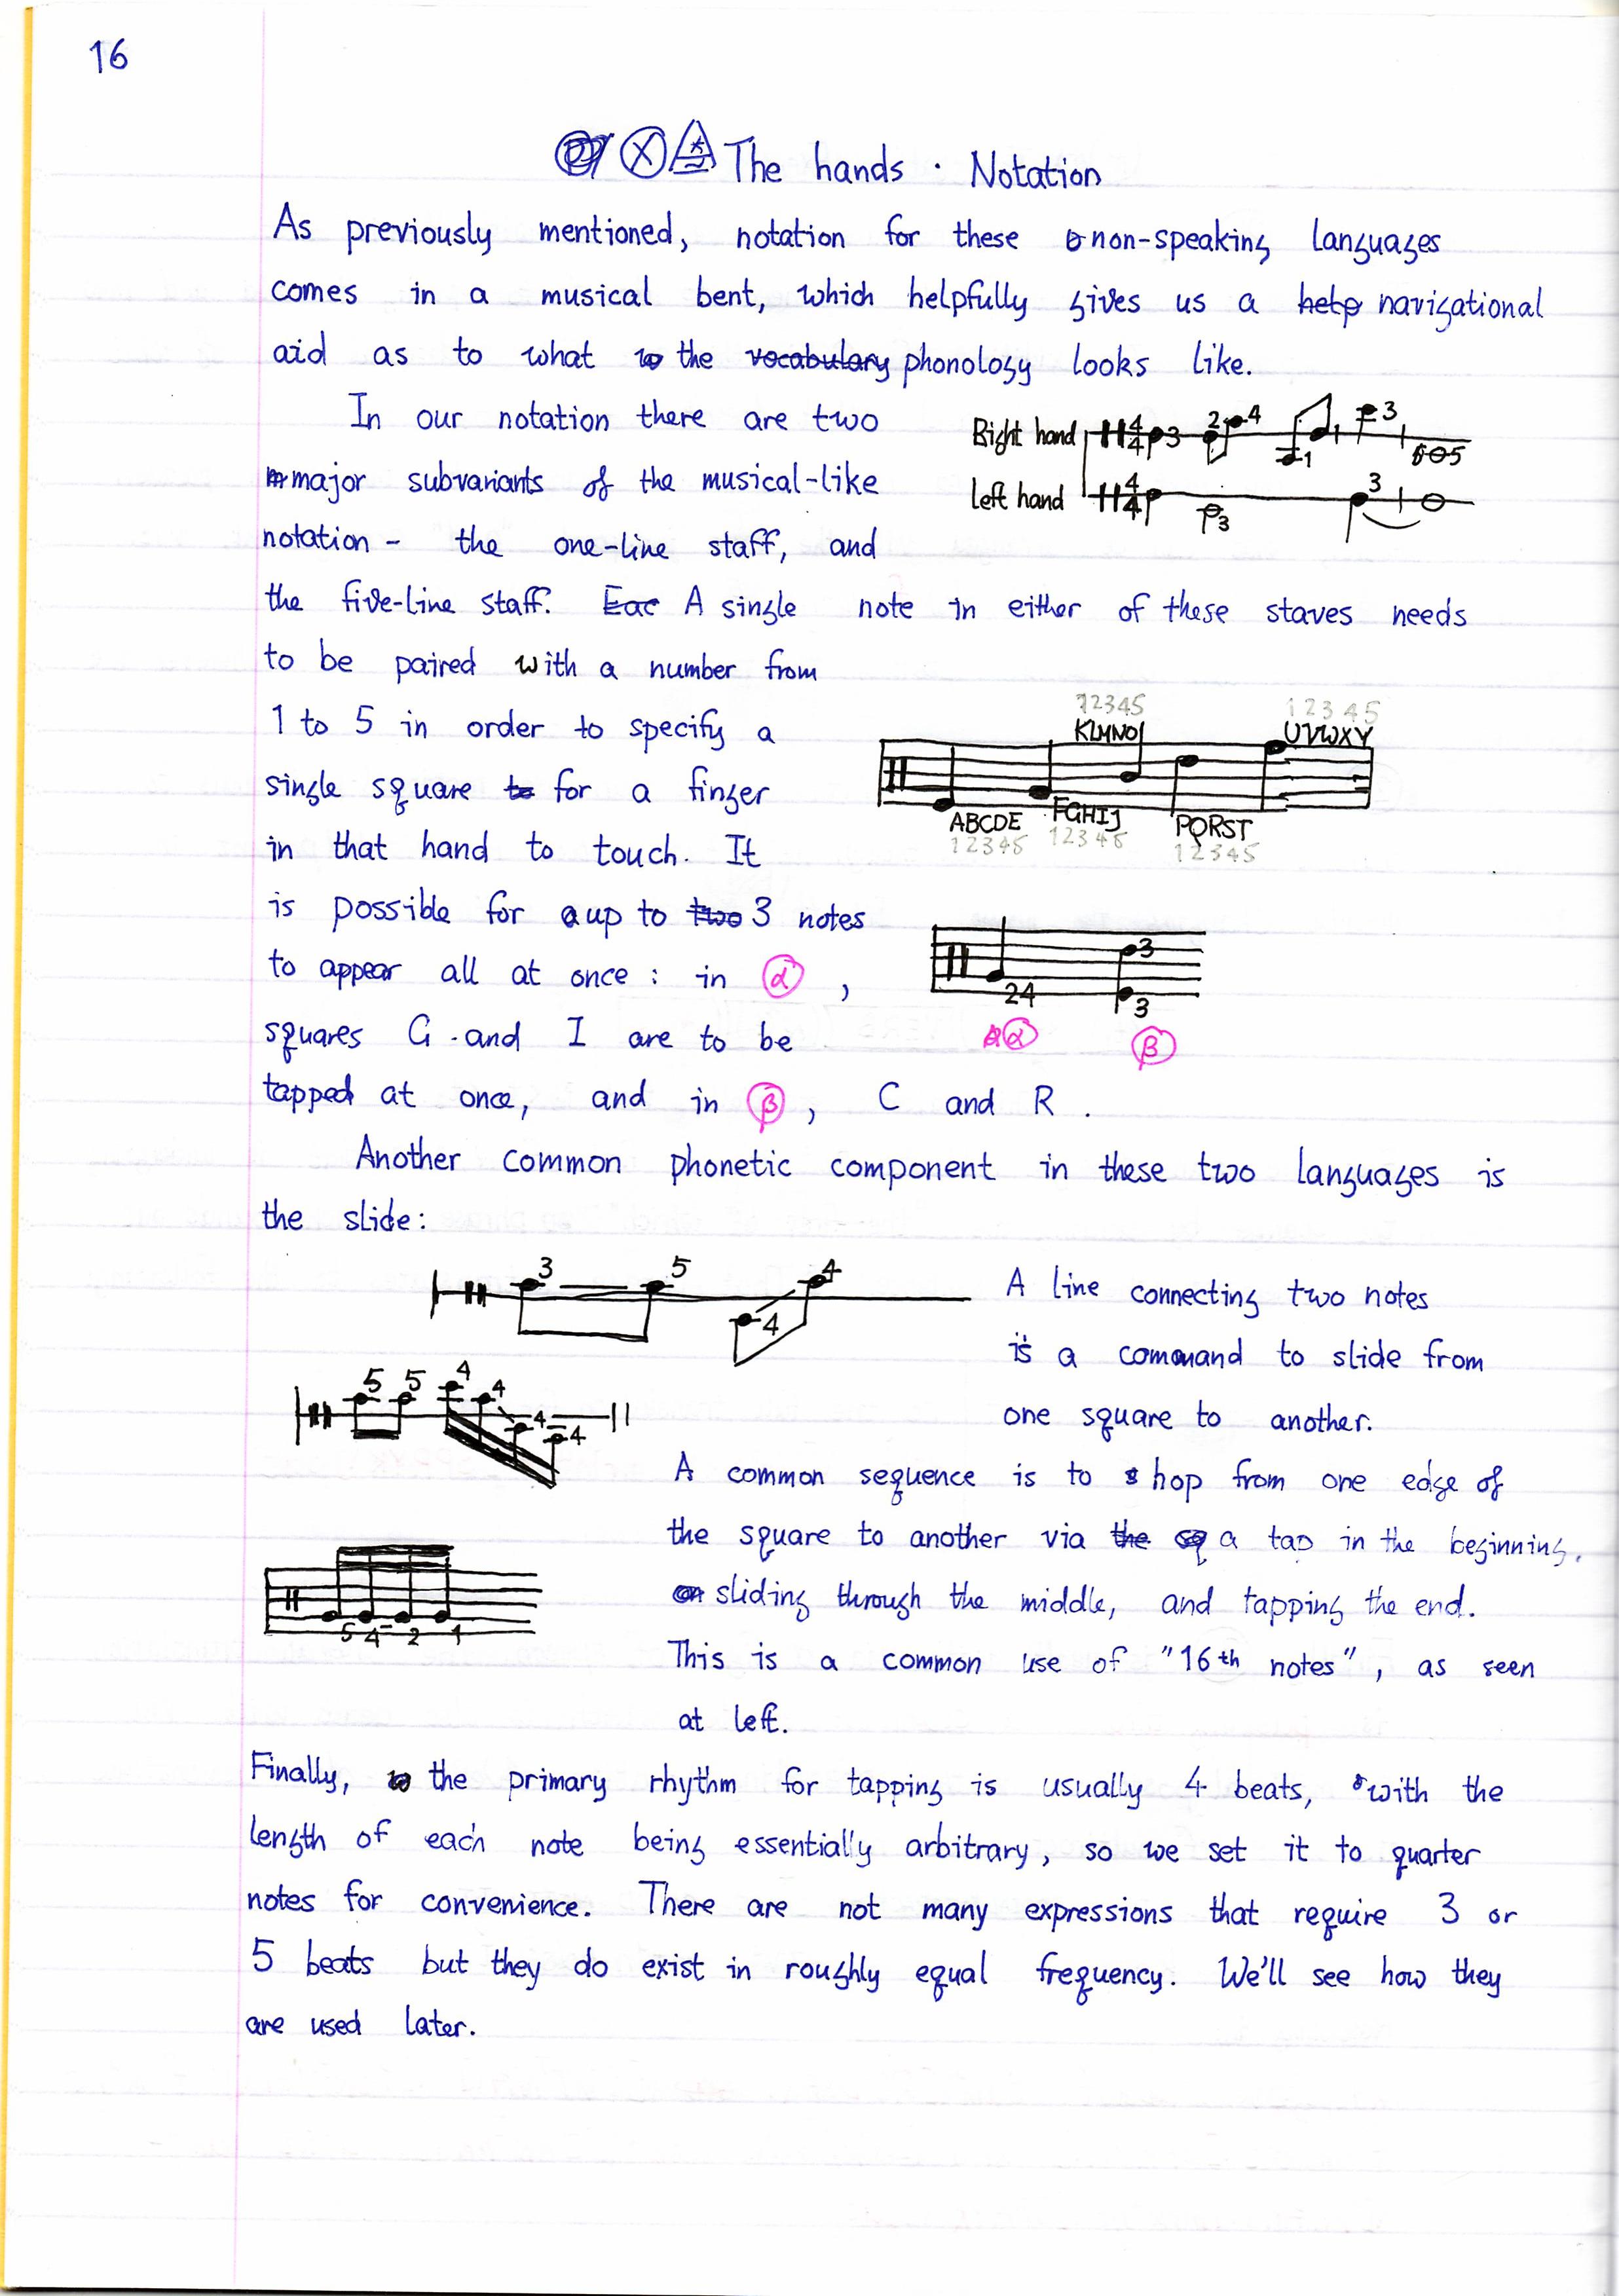 16
The hands · Notation
As previously mentioned, notation for these non-speaking languages
comes in a musical bent, which helpfully gives us a help navigational
aid as to what to the vocabulary phonology looks like.
In our notation there are two
major subvariants of the musical-like
notation - the one-line staff, and
the five-line staff. Eac A single note in either of these staves needs
to be paired with a number from
1 to 5 in order to specify a
single square to for a finger
in that hand to touch. It
is possible for up to two 3 notes
to appear all at once : in α ,
squares G and I are to be
tapped at once, and in β , C and R .
Right hand 4 4 3 2 4 1 1 3 5
Left hand 4 4 3 3
12345 12345
KLMNO UVWXY
ABCDE FGHIJ PQRST
12345 12345 12345
3
24 3
α β
Another common phonetic component in these two languages is
the slide:
3 5 4 4
A line connecting two notes
is a command to slide from
one square to another.
5 5 4 4 4 4
A common sequence is to hop from one edge of
the square to another via the sq a tap in the beginning,
sliding through the middle, and tapping the end.
This is a common use of "16th notes", as seen
at left.
5 4 2 1
Finally, to the primary rhythm for tapping is usually 4 beats, with the
length of each note being essentially arbitrary, so we set it to quarter
notes for convenience. There are not many expressions that require 3 or
5 beats but they do exist in roughly equal frequency. We'll see how they
are used later.